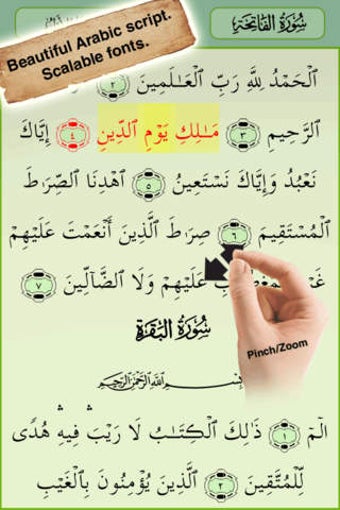 سُورَةُ الفَاتِحَةِ
Beautiful Arabic script.
Scalable fonts.
ٱلْحَمْدُ لِلَّهِ رَبِّ ٱلْعَـٰلَمِينَ ٢
ٱلرَّحِيمِ ٣ مَـٰلِكِ يَوْمِ ٱلدِّينِ ٤ إِيَّاكَ
نَعْبُدُ وَإِيَّاكَ نَسْتَعِينُ ٥ ٱهْدِنَا ٱلصِّرَٰطَ
ٱلْمُسْتَقِيمَ ٦ صِرَٰطَ ٱلَّذِينَ أَنْعَمْتَ عَلَيْهِمْ
عَلَيْهِمْ وَلَا ٱلضَّآلِّينَ ٧
سُورَةُ البَقَرَةِ
Pinch/Zoom
بِسْمِ ٱللَّهِ ٱلرَّحْمَـٰنِ ٱلرَّحِيمِ
الٓمٓ ١ ذَٰلِكَ ٱلْكِتَـٰبُ لَا رَيْبَ ۛ فِيهِ ۛ هُدًى
لِّلْمُتَّقِينَ ٢ ٱلَّذِينَ يُؤْمِنُونَ بِٱلْغَيْبِ